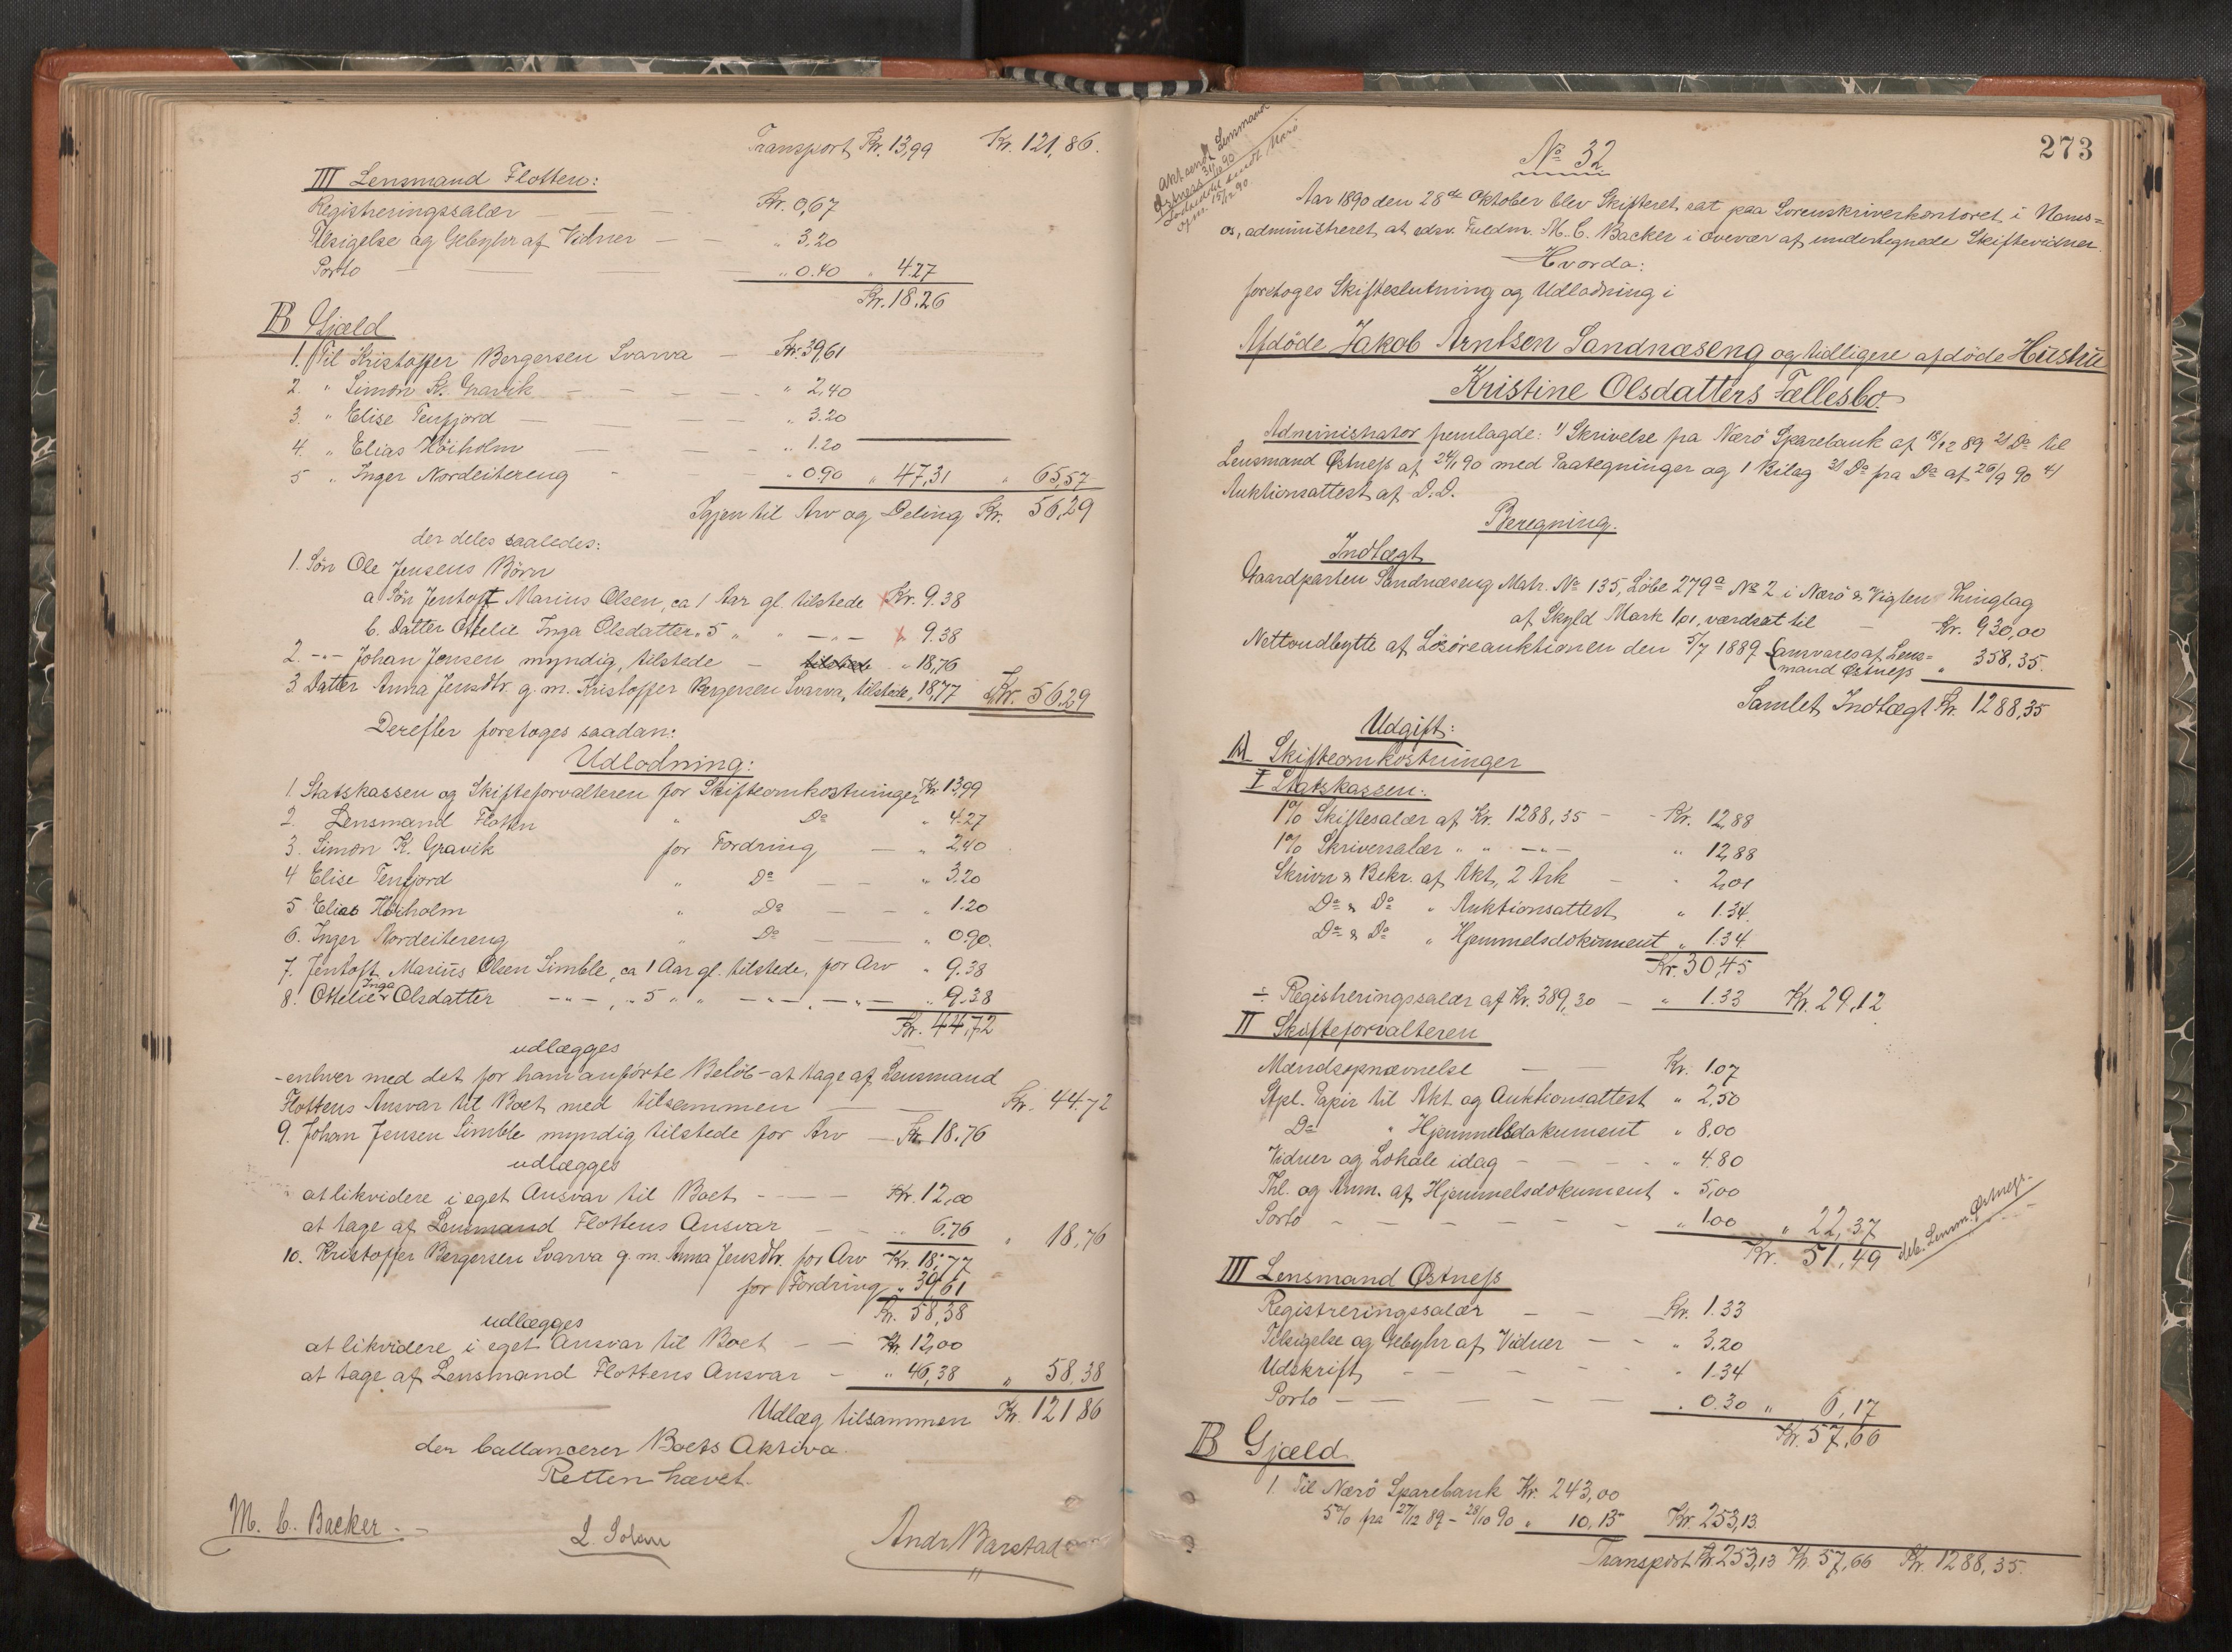 Transport Kr. 13,99 Kr. 121,86.
III Lensmand Flotten:
Registreringssalær — Kr. 0,67
Tilsigelse og Gebyhr af Vidner — „ 3.20
Porto — „ 0.40 „ 4.27
Kr. 18.26
B Gjæld
1. Til Kristoffer Bergersen Svarva — Kr. 39,61
2. „ Simon K. Gravik — „ 2,40
3. „ Elise Tenfjord — „ 3.20
4. „ Elias Höiholm — „ 1.20
5 „ Inger Nordeitereng - „ 0.90 „ 47,31 „ 65,57
Igjen til Arv og Deling Kr. 56,29
der deles saaledes:
1. Sön Ole Jensens Börn
a Sön Jentoft Marius Olsen, ca 1 Aar gl. tilstede Kr. 9.38
b. Datter Ottelie Inga Olsdatter „ 5 „ „ —„— „ 9.38
2. -„- Johan Jensen myndig, tilstede — tilstede „ 18,76
3. Datter Anna Jensdtr. g. m. Kristoffer Bergersen Svarva, tilstede „ 18,77 Kr. 56,29
Derefter foretoges saadan:
Udlodning:
1. Statskassen og Skifteforvalteren for Skifteomkostninger Kr. 13,99
2. Lensmand Flotten „ Do „ 4.27
3. Simon K. Gravik for Fordring — „ 2,40
4 Elise Tenfjord „ Do — „ 3.20
5 Elias Höiholm „ Do — „ 1.20
6. Inger Nordeitereng „ Do — „ 0,90.
7. Jentoft Marius Olsen Simble, ca 1 Aar gl. tilstede, for Arv „ 9.38
8. Ottelie Inga Olsdatter -„- , „ 5 „ „ -„- , -„- „ 9.38
Kr. 44,72
udlægges
- enhver med det for ham anførte Belöb - at tage af Lensmand
Flottens Ansvar til Boet med tilsammen — Kr. 44.72
9. Johan Jensen Simble myndig tilstede for Arv — Kr. 18.76
udlægges
at likvidere i eget Ansvar til Boet — Kr. 12,00
at tage af Lensmand Flottens Ansvar — „ 6.76 „ 18,76
10. Kristoffer Bergersen Svarva g. m. Anna Jensdtr. for Arv Kr. 18,77
for Fordring „ 39,61
Kr. 58,38
udlægges
at likvidere i eget Ansvar til Boet — Kr. 12,00
at tage af Lensmand Flottens Ansvar — „ 46,38 „ 58,38
Udlæg tilsammen Kr. 121,86
der ballancerer Boets Aktiva.
Retten hævet.
M. C. Backer. Andr Barstad
273
No 32
Aar 1890 den 28de Oktober blev Skifteret sat paa Sorenskriverkontoret i Nams=
os, administreret af edsv. Fuldm. M. C. Backer i overvær af undertegnede Skiftevidner.
Hvorda:
foretoges Skifteslutning og Udlodning i
Afdöde Jakob Arntsen Sandnæseng og tidligere afdöde Hustru
Kristine Olsdatters Fællesbo.
Administrator fremlagde: 1) Skrivelse fra Nærö Sparebank af 18/12 89 2) Do til
Lensmand Østness af 24/1 90 med Paategninger og 1 Bilag 3) Do fra Do af 26/9 90 4)
Auktionsattest af D.D.
Beregning.
Indtægt
Gaardparten Sandnæseng Matr. No 135, Löbe 279a No 2 i Nærö & Vigten Thinglag
af Skyld Mark 1,01, værdsat til — Kr. 930,00
Nettoudbytte af Lösöreauktionen den 5/7 1889 (ansvares af Lens=
mand Østness „ 358,35.
Samlet Indtægt Kr. 1288,35
Udgift:
A Skifteomkostninger
I Statskassen:
1% Skiftesalær af Kr. 1288,35 - - Kr. 12,88
1% Skriversalær „ „ -„- „ 12,88
Skrivn & Bekr. af Akt, 2 Ark - „ 2,01
Do & Do „ Auktionsattest „ 1.34.
Do & Do „ Hjemmelsdokument „ 1.34
Kr. 30,45
÷ Registreringssalær af Kr. 389,30 — „ 1.33 Kr. 29,12
II Skifteforvalteren
Mændsopnævnelse — Kr. 1.07
Stpl. Papir til Akt og Auktionsattest „ 2,50
Do „ Hjemmelsdokument „ 8,00
Vidner og Lokale idag - „ 4.80
Thl. og Anm. af Hjemmelsdokument „ 5,00
Porto - „ 1.00 „ 22,37
Kr. 51,49
deb. Lensm. Østness.
III Lensmand Østness
Registreringssalær — Kr. 1.33
Tilsigelse og Gebyhr af Vidner — „ 3.20
Udskrift - „ 1.34
Porto — „ 0.30 „ 6,17
Kr. 57,66
B Gjæld
1. Til Nærö Sparebank Kr. 243,00
5% fra 27/12 89 - 28/10 90 „ 10,13 Kr. 253,13.
Transport Kr 253,13 Kr. 57,66 Kr. 1288,35.